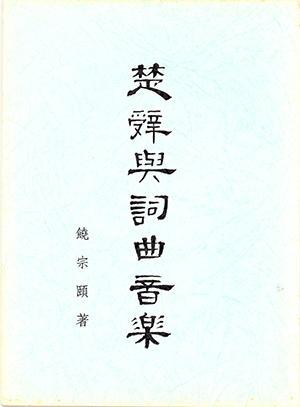 楚辭與詞曲音樂
饒宗頤 著